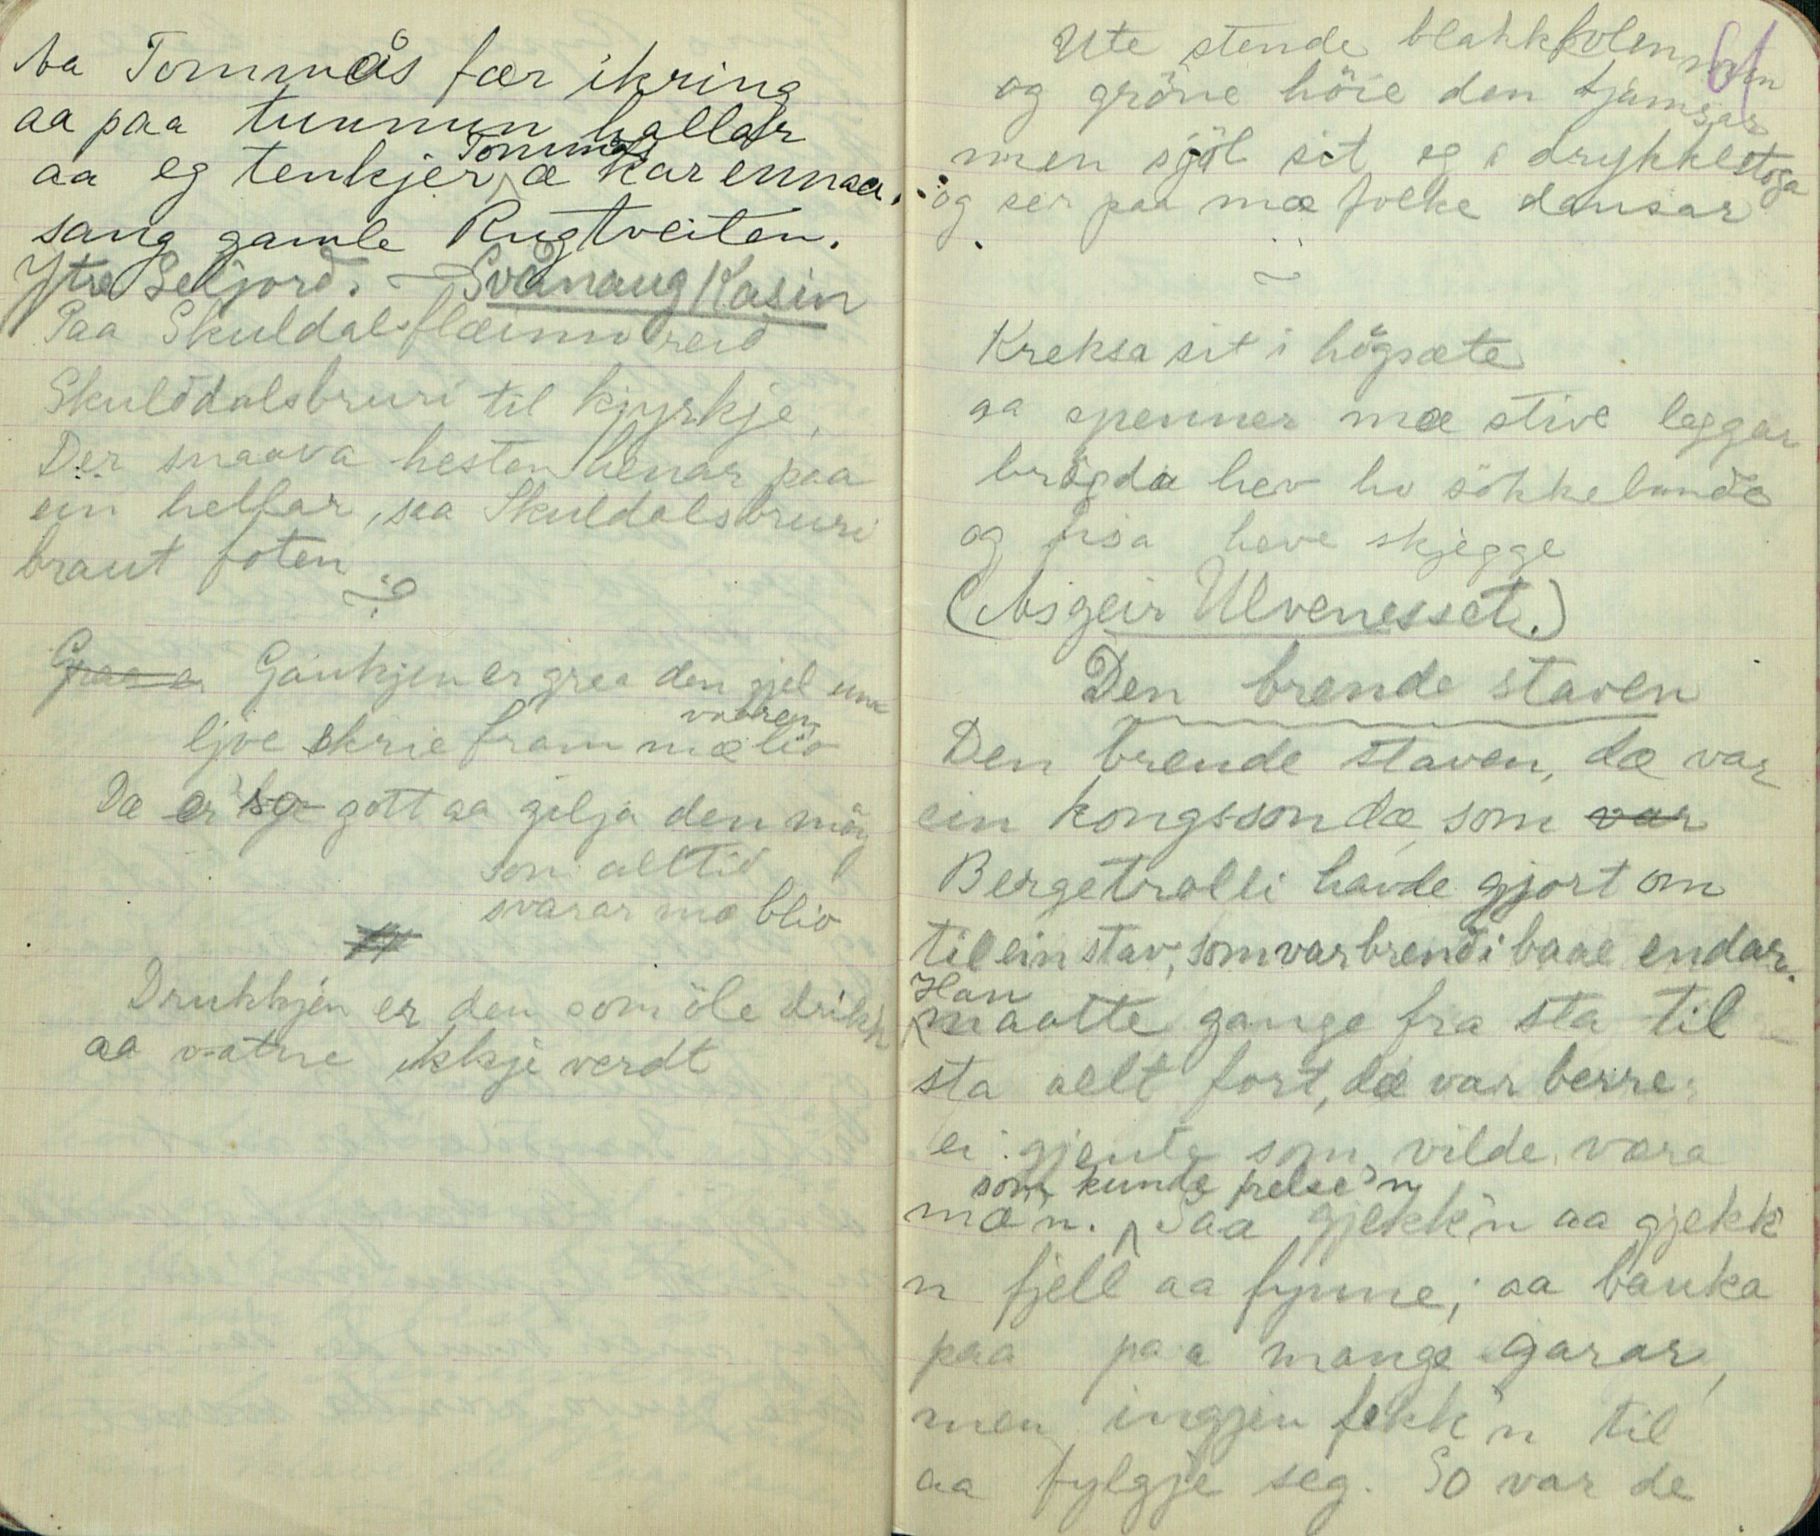 Aa Tommås fær ikring
aa paa tunnun hallar
aa eg tenkjer Tommås æ kar ennaa.
sang gamle Rugtveiten.
Ytre Seljord. – Svånaug Kasin
Paa Skuldalsflæinn reid
Skulddalsbruri til kjyrkje,
Der snaava hesten henar paa
ein hellar, saa Skuldalsbruri
braut foten
Graa er Gaukjen er graa den gjel um vaaren
ljoe skrie fram mæ lio
Dæ er so gott aa gilja den möy
som alltid
svarar mæ blio
Drukkjen er den som öle drikk
aa vatne ikkje verdt
61
Ute stende blakkfolen min
og gröne höie den tjamsar
men sjöl sit eg i drykkestoga
og ser paa mæ folke dansar
Kreksa sit i högsæte
aa spenner mæ stive leggar
brögda hev ho sökkebunde
og hisa heve skjegge
(Asgeir Ulvenesset.)
Den brende staven
Den brende staven, dæ var
ein kongsson dæ, som var
Bergetrolli havde gjort om
til ein stav, som var brend i baae endar.
Han maatte gange fra sta til
sta allt fort, dæ var berre
ei gjente som vilde væra
mæ'n. som kunde frelse'n Saa gjekk'n aa gjekk
n fjell aa fynne; aa banka
paa paa mange garar,
men ingjen fekk'n til
aa fylgje seg. So var de